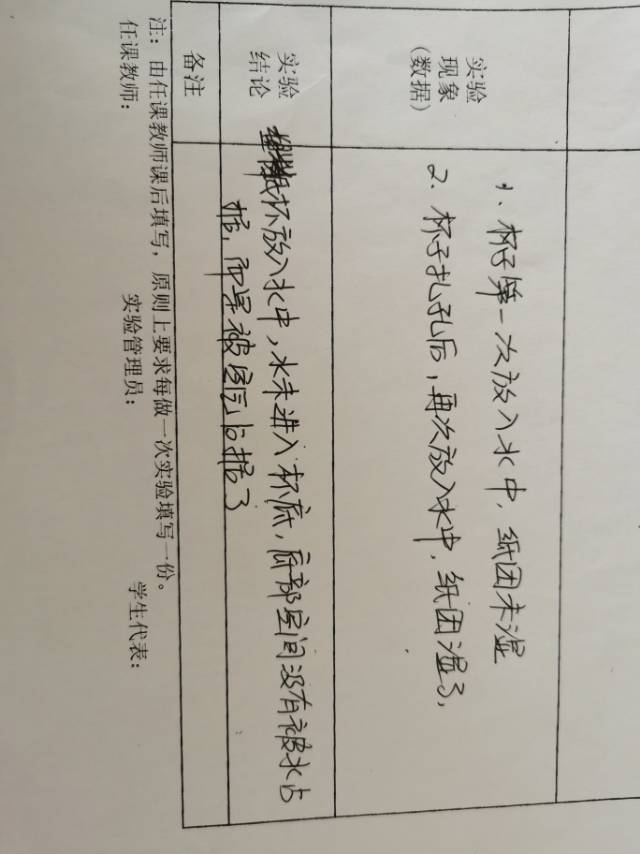 实验
现象
（数据）
1、杯子第一次放入水中，纸团未湿
2、杯子扎孔后，再次放入水中，纸团湿了，
实验
结论
纸杯放入水中，水未进入杯底，底部空间没有被水占
据，而是被空气占据了
备注
注：由任课教师课后填写，原则上要求每做一次实验填写一份。
任课教师： 实验管理员： 学生代表：